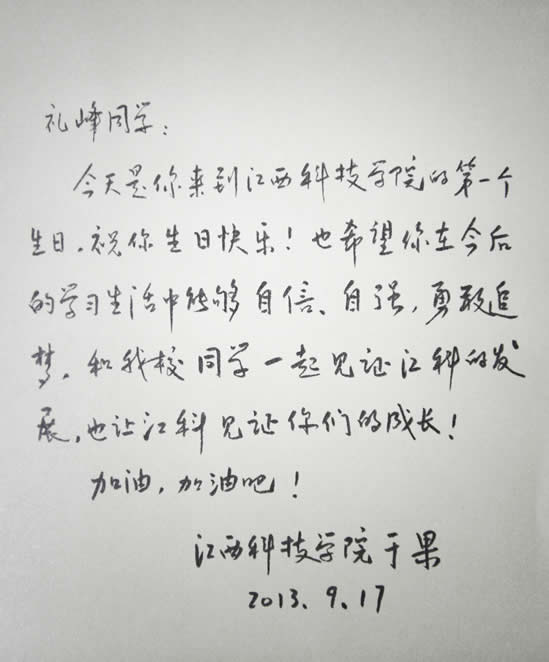 礼峰同学：
今天是你来到江西科技学院的第一个
生日，祝你生日快乐！也希望你在今后
的学习生活中能够自信、自强，勇敢追
梦，和我校同学一起见证江科的发
展，也让江科见证你们的成长！
加油，加油吧！
江西科技学院于果
2013.9.17